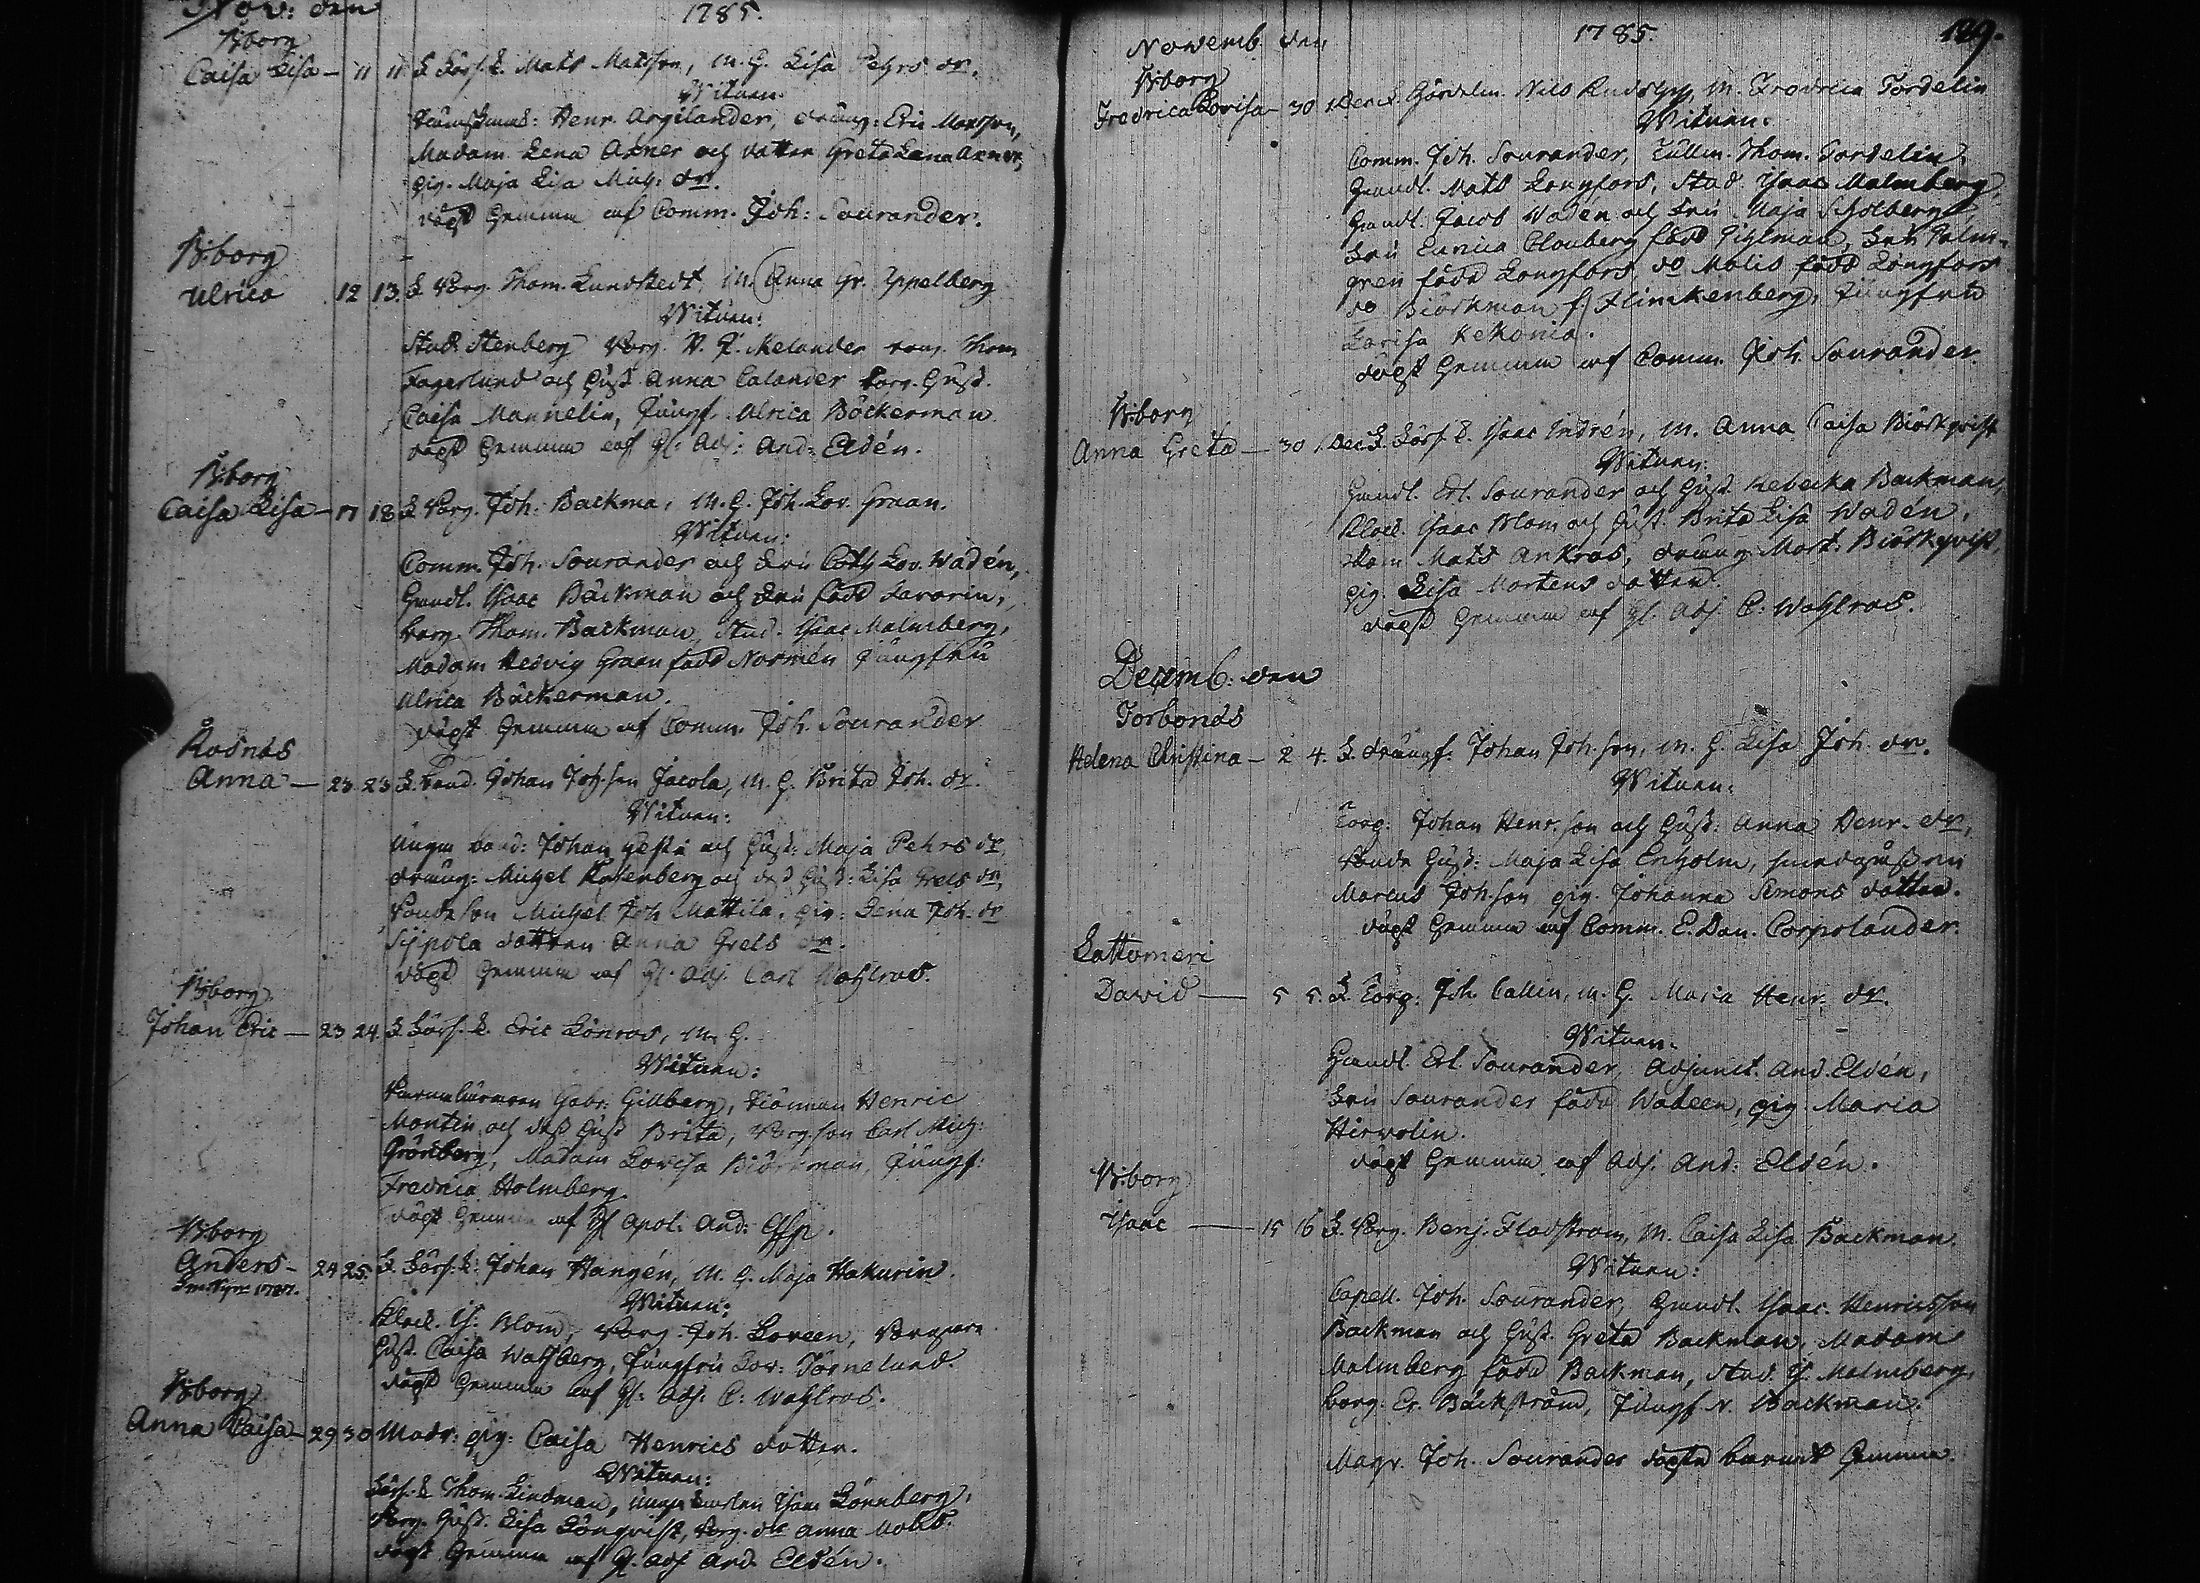 Nov: den 1785.
B:borg
Caisa Lisa — 11 11 Mats Matsson, M. H. Lisa Pehrs dr.
Witnen.
Henr. Argilander, dräng: Eric Matsson,
Madam Lena Axner och dotter Greta Lena Axner,
pig. Maja Lisa Mich: dr.
döpt hemma af Comm. Joh: Sourander.
B:borg
Ulrica 12 13. Borg. Thom. Lundstedt M. Anna Gr. Ippelberg
Witnen:
Stud. Stenberg Borg. Melander Thom
Fagerlund och Hust. Anna Calander borg. Hust.
Caisa Mannelin, Jungf. Ulrica Böckerman
döpt hemma af Adj: And: Eldén.
B:borg
Caisa Lisa — 17 18 Borg. Joh: Backman, M. H. Joh. Lov. Graan.
Witnen:
Comm. Joh. Sourander och Fru Cath Lov. Wadén,
Handl. Isaac Bäckman och Fru född Savorin,
borg. Thom. Backman, Stud. Isaac Malmberg,
Madam Hedvig Graan född Normén Jungfru
Ulrica Bäckerman.
döpt hemma af Comm. Joh. Sourander
Rosnäs
Anna — 23 23 bond. Johan Joh:son Jacola, M. H. Brita Joh. dr.
Witnen:
Unga bond: Johan och Hust: Maja Pehrs dr
dräng: Michel Rosenberg och dess Hust: Lisa Grels dr,
Bondeson Michel Joh Mattila, pig: Lena Joh: dr
Sippola dotter Anna Grels dr.
döpt hemma af Adj. Carl Wahlroos.
B:borg
Johan Eric — 23 24. Eric Lönroos, M. H.
Witnen:
Gabr: Gillberg, Henric
Montin och dess Hust Brita, Borg. son Carl Mich:
Grönberg, Madam Lovisa Biörkman, Jungf:
Fredrica Holmberg.
döpt hemma af Apol. And:
B:borg
Anders — 24 25. Johan Hangén, M. H. Maja Hakurin.
Witnen:
Klock. Is. Blom, Borg. Joh. Loreen,
Hust. Caisa Wahlberg, Jungfru Lov: Törnelund.
döpt hemma af Adj. C: Wahlroos.
B:borg
Anna Caisa — 29 30 Modr: pig: Caisa Henrics dotter.
Witnen:
Thom. Lindman, Isaac Lönnberg,
Borg. Hust. Lisa Lönqvist, borg. dr Anna
döpt hemma af Adj And. Eldén.
Novemb. den 1785. 129.
B:borg
Fredrica Lovisa — 30 1 Dec. Nils M. Fredrica Tordelin
Witnen.
Comm. Joh. Sourander, Tullm. Thom. Tordelin,
Handl. Mats Longfors, Stud. Isaac Malmberg,
Handl. Jacob Wadén och Fru Maja
Fru född
gren född Longfors, do Molis född Longfors
do Biörkman f. Flinckenberg, Jungfru
Lovisa Kekonia.
döpt hemma af Comm. Joh. Sourander.
B:borg
Anna Greta — 30 1 Dec. Isaac Indrén, M. Anna Caisa Biörkqvist
Witnen:
Handl. Erl. Sourander och Hust. Rebecka Backman,
Klock. Isaac Blom och Hust. Brita Lisa Wadén,
Mats Ankras, dräng Mart. Biörkqvist,
pig. Lisa Mortens dotter.
döpt hemma af Adj C: Wahlroos.
Decemb: den
Torbonäs
Helena Christina — 2 4. Johan Joh.son, M. H. Lisa Joh dr.
Witnen:
Torp: Johan Henr.son och Hust: Anna Henr. dr,
Bonde Hust: Maja Lisa Enholm,
Marcus Joh:son pig. Johanna Simons dotter.
döpt hemma af Comm. E. Dan. Corpolander.
Lattomeri
David — 5 5. Torp: Joh. Callin, M. H. Maria Henr. dr.
Witnen.
Handl. Erl. Sourander, Adjunct. And. Eldén,
Fru Sourander född Wadeen, pig Maria
Hirvolin.
döpt hemma af Adj. And: Eldén.
B:borg
Isaac — 15 16 Borg. Benj. Flodström, M. Caisa Lisa Backman.
Witnen:
Capell. Joh. Sourander, Handl. Isaac Henricsson
Backman och Hust. Greta Backman, Madam
Malmberg född Backman, Stud. Is. Malmberg,
borg: Er. Bäckström, Jungf. Backman.
Magr. Joh. Sourander döpte barnet hemma.